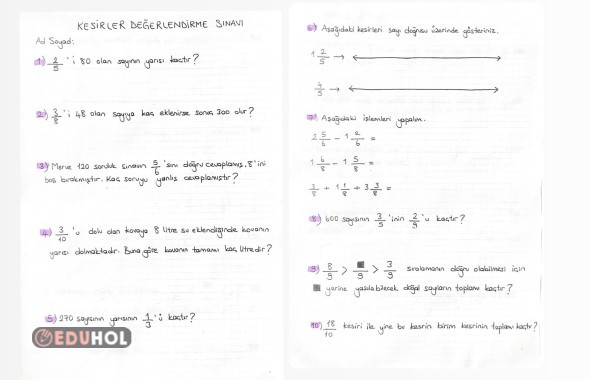 KESİRLER DEĞERLENDİRME SINAVI
Ad Soyad:
1) 2/5 'i 80 olan sayının yarısı kaçtır?
2) 3/8 'i 48 olan sayıya kaç eklenirse sonuç 300 olur?
3) Merve 120 soruluk sınavın 5/6 'sını doğru cevaplamış, 8'ini
boş bırakmıştır. Kaç soruyu yanlış cevaplamıştır?
4) 3/10 'u dolu olan kovaya 8 litre su eklendiğinde kovanın
yarısı dolmaktadır. Buna göre kovanın tamamı kaç litredir?
5) 270 sayısının yarısının 1/3 'ü kaçtır?
EDUHOL
6) Aşağıdaki kesirleri sayı doğrusu üzerinde gösteriniz.
1 2/5 →
4/5 →
7) Aşağıdaki işlemleri yapalım.
2 5/6 - 1 2/6 =
1 6/8 - 1 5/8 =
+ 1 1/8 + 3 3/8 =
8) 600 sayısının 3/5 'inin 2/9 'u kaçtır?
9) 8/9 > ■/9 > 3/9 sıralamanın doğru olabilmesi için
■ yerine yazılabilecek doğal sayıların toplamı kaçtır?
10) 18/10 kesiri ile yine bu kesrin birim kesrinin toplamı kaçtır?